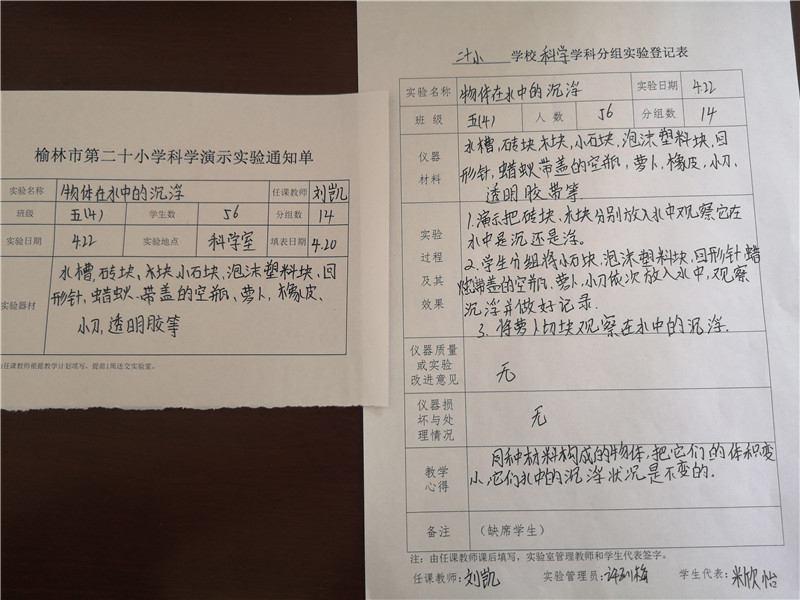 榆林市第二十小学科学演示实验通知单
实验名称 物体在水中的沉浮 任课教师 刘凯
班级 五(4) 学生数 56 分组数 14
实验日期 4.22 实验地点 科学室 填表日期 4.20
实验器材
水槽,砖块、木块,小石块、泡沫塑料块、回
形针,蜡蚁、带盖的空瓶、萝卜,橡皮、
小刀,透明胶等
由任课教师根据教学计划填写、提前1周送交实验室。
二十小 学校 科学 学科分组实验登记表
实验名称 物体在水中的沉浮 实验日期 4.22
班 级 五(4) 人 数 56 分组数 14
仪器
材料
水槽,砖块木块,小石块,泡沫塑料块,回
形针,蜡蚁带盖的空瓶,萝卜,橡皮,小刀,
透明胶带等
实验
过程
及其
效果
1.演示把砖块、木块分别放入水中观察它在
水中是沉还是浮。
2.学生分组将小石块,泡沫塑料块,回形针,蜡
烛带盖的空瓶,萝卜,小刀依次放入水中,观察
沉浮并做好记录.
3、将萝卜切块观察在水中的沉浮.
仪器质量
或实验
改进意见
无
仪器损
坏与处
理情况
无
教学
心得
同种材料构成的物体,把它们的体积变
小,它们水中的沉浮状况是不变的.
备注 (缺席学生)
注:由任课教师课后填写,实验室管理教师和学生代表签字。
任课教师:刘凯 实验管理员: 学生代表:米欣怡